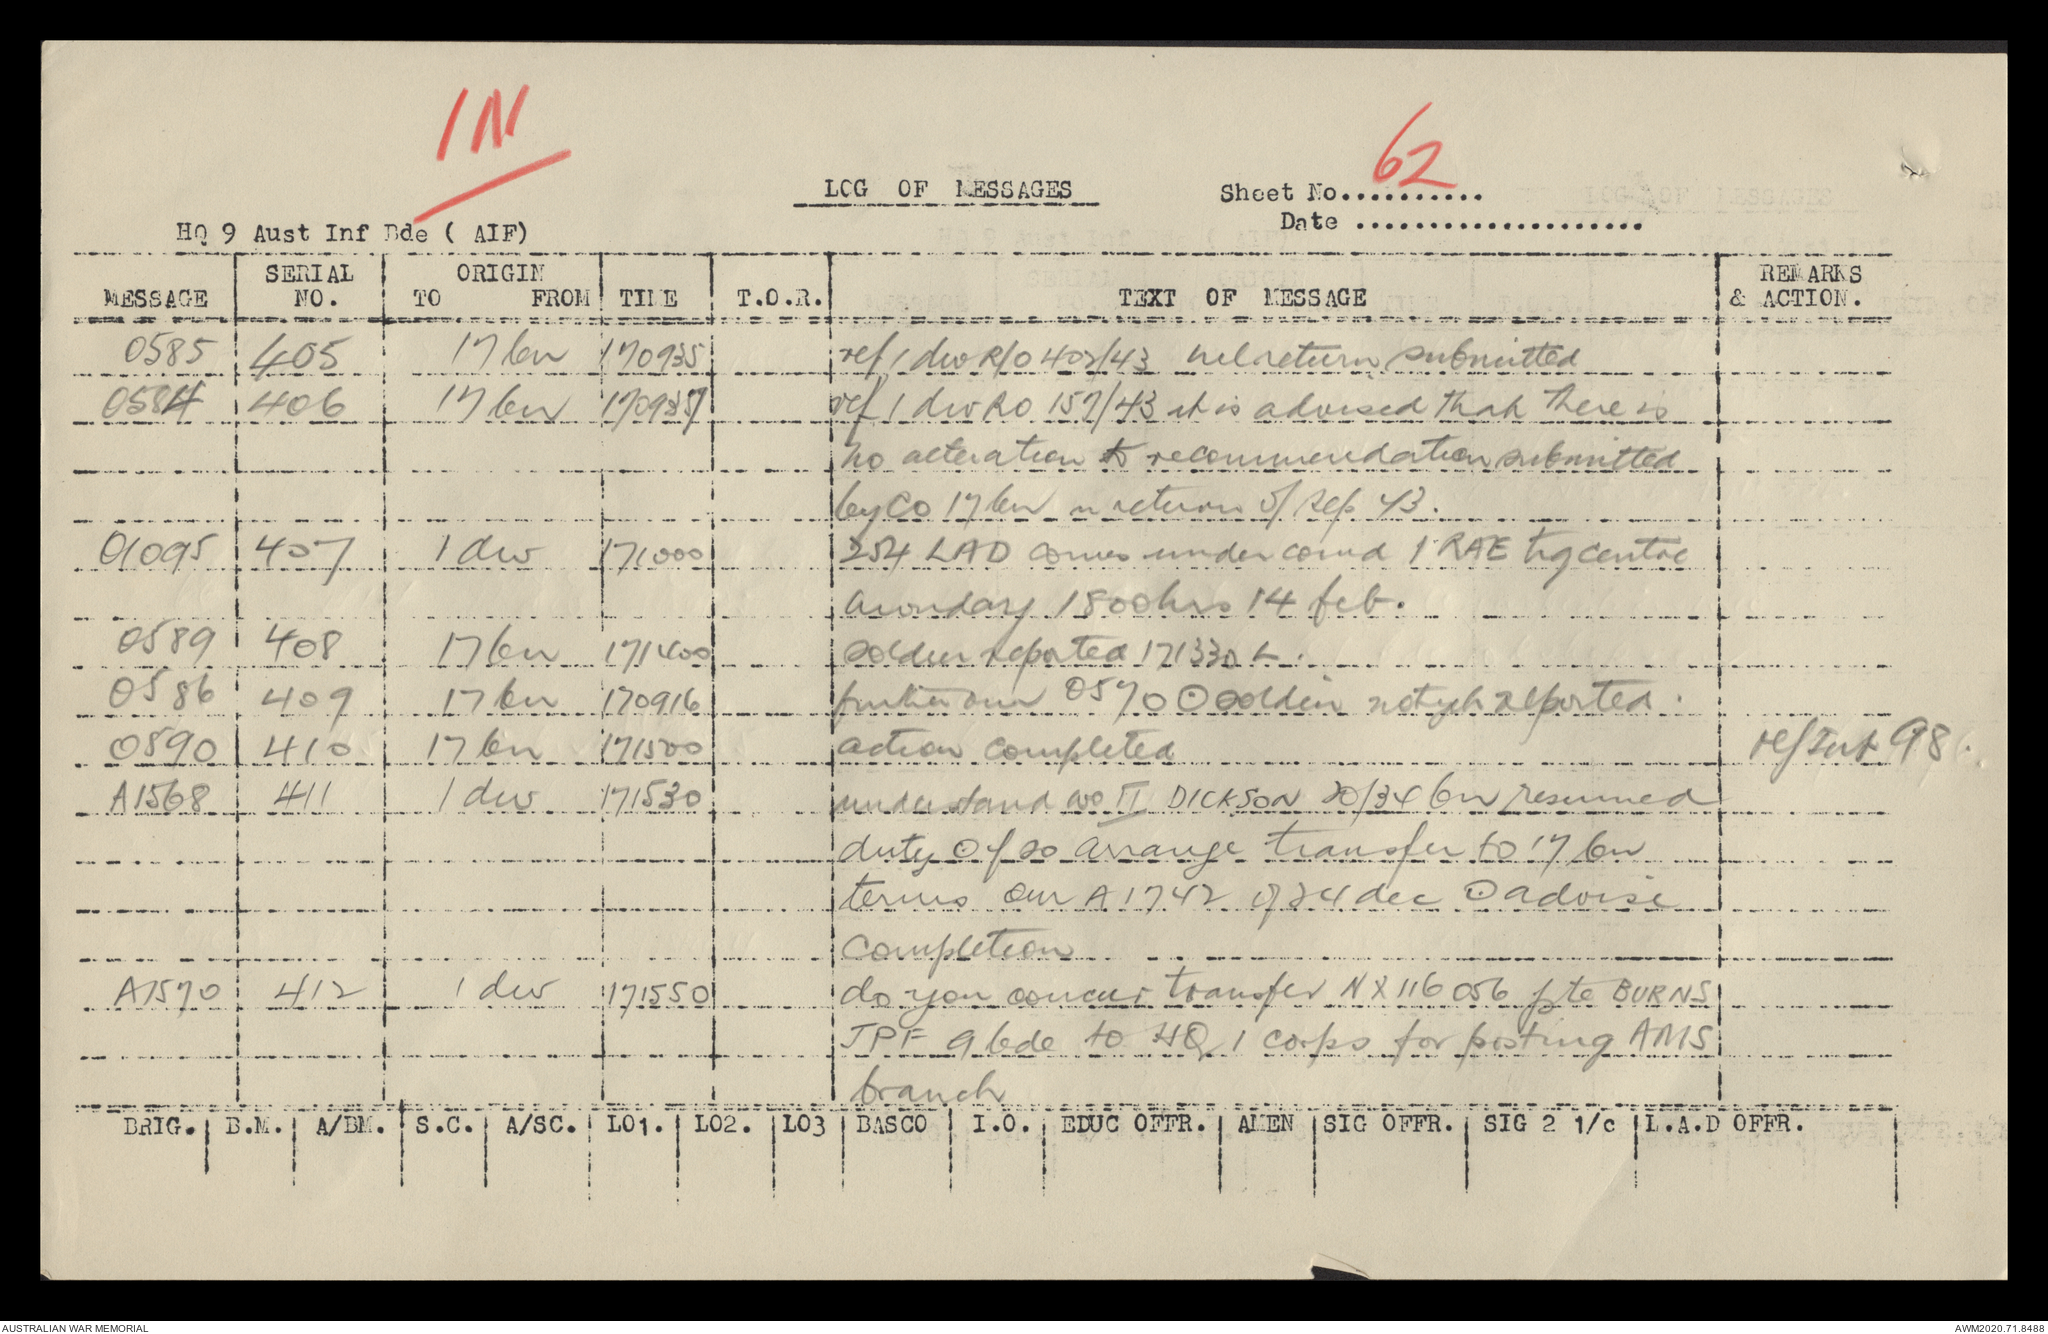 IN
62
LOG OF MESSAGES
Sheet No..........
Date ....................
HQ 9 Aust Inf Bde ( AIF)
MESSAGE SERIAL NO. ORIGIN TO FROM TIME T.O.R. TEXT OF MESSAGE REMARKS & ACTION.
0585 405 17 bn 170935 ref 1 div R/O 402/43 nil return submitted
0584 406 17 bn ref 1 div RO 157/43 it is advised that there is
no alteration to recommendation submitted
by CO 17 bn in return of Sep 43.
O1095 407 1 div 171000 254 LAD comes under comd 1 RAE trg centre
1800 hrs 14 feb.
0589 408 17 bn 171400 soldier reported 171330 L.
0586 409 17 bn 170916 further our 0570 ⊙ soldier not yet reported.
0590 410 17 bn 171500 action completed ref our 98
A1568 411 1 div 171530 understand WO II DICKSON 20/34 bn resumed
duty ⊙ if so arrange transfer to 17 bn
terms our A1742 of 24 dec ⊙ advise
completion
A1570 412 1 div 171550 do you concur transfer NX116056 pte BURNS
JPF 9 bde to HQ 1 corps for posting AMS
branch
BRIG. B.M. A/BM. S.C. A/SC. LO1. LO2. LO3 BASCO I.O. EDUC OFFR. AMEN SIG OFFR. SIG 2 1/c L.A.D OFFR.
AUSTRALIAN WAR MEMORIAL AWM2020.71.8488